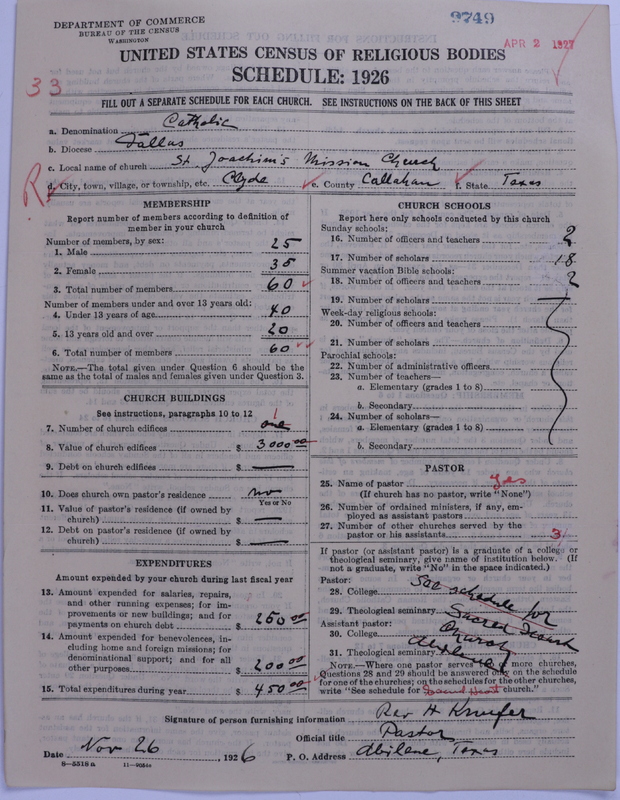 DEPARTMENT OF COMMERCE
BUREAU OF THE CENSUS
WASHINGTON
9749
APR 2 1927
UNITED STATES CENSUS OF RELIGIOUS BODIES
SCHEDULE: 1926
33
FILL OUT A SEPARATE SCHEDULE FOR EACH CHURCH. SEE INSTRUCTIONS ON THE BACK OF THIS SHEET
a. Denomination Catholic
b. Diocese Dallas
c. Local name of church St. Joachim's Mission Church
d. City, town, village, or township, etc. Clyde e. County Callahan f. State Texas
MEMBERSHIP
Report number of members according to definition of
member in your church
Number of members, by sex:
1. Male 25
2. Female 35
3. Total number of members 60
Number of members under and over 13 years old:
4. Under 13 years of age 40
5. 13 years old and over 20
6. Total number of members 60
NOTE.—The total given under Question 6 should be
same as the total of males and females given under Question 3.
CHURCH BUILDINGS
See instructions, paragraphs 10 to 12
7. Number of church edifices one 1
8. Value of church edifices $ 3000 00
9. Debt on church edifices $ —
10. Does church own pastor's residence no
Yes or No
11. Value of pastor's residence (if owned by
church) $ —
12. Debt on pastor's residence (if owned by
church) $ —
EXPENDITURES
Amount expended by church during last fiscal year
13. Amount expended for salaries, repairs,
and other running expenses; for im-
provements or new buildings; and for
payments on church debt $ 250 00
14. Amount expended for benevolences, in-
cluding home and foreign missions; for
denominational support; and for all
other purposes $ 200 00
15. Total expenditures during year $ 450 00
CHURCH SCHOOLS
Report here only schools conducted by this church
Sunday schools:
16. Number of officers and teachers 2
17. Number of scholars 18
Summer vacation Bible schools:
18. Number of officers and teachers 2
19. Number of scholars —
Week-day religious schools:
20. Number of officers and teachers
21. Number of scholars
Parochial schools:
22. Number of administrative officers
23. Number of teachers—
a. Elementary (grades 1 to 8)
b. Secondary
24. Number of scholars—
a. Elementary (grades 1 to 8)
b. Secondary
PASTOR
25. Name of pastor Yes
(If church has no pastor, write "None")
26. Number of ordained ministers, if any, em-
ployed as assistant pastors
27. Number of other churches served by the
pastor or his assistants 3
If pastor (or assistant pastor) is a graduate of a college or
theological seminary, give name of institution below. (If
not a graduate, write "No" in the space indicated.)
Pastor:
28. College See schedule for
29. Theological seminary Sacred Heart
Assistant pastor:
30. College Church
31. Theological seminary Abilene
NOTE.—Where one pastor serves more churches,
Questions 28 and 29 should be answered only on the schedule
for one of the churches; on the schedules for the other churches,
write "See schedule for Sacred Heart church."
Signature of person furnishing information Rev H
Official title Pastor
Date Nov 26, 1926 P. O. Address Abilene, Texas
8—5518a 11—9054a